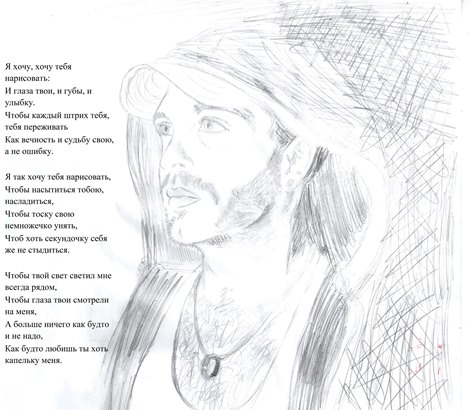 Я хочу, хочу тебя
нарисовать:
И глаза твои, и губы, и
улыбку.
Чтобы каждый штрих тебя,
тебя переживать
Как вечность и судьбу свою,
а не ошибку.
Я так хочу тебя нарисовать,
Чтобы насытиться тобою,
насладиться,
Чтобы тоску свою
немножечко унять,
Чтоб хоть секундочку себя
же не стыдиться.
Чтобы твой свет светил мне
всегда рядом,
Чтобы глаза твои смотрели
на меня,
А больше ничего как будто
и не надо,
Как будто любишь ты хоть
капельку меня.